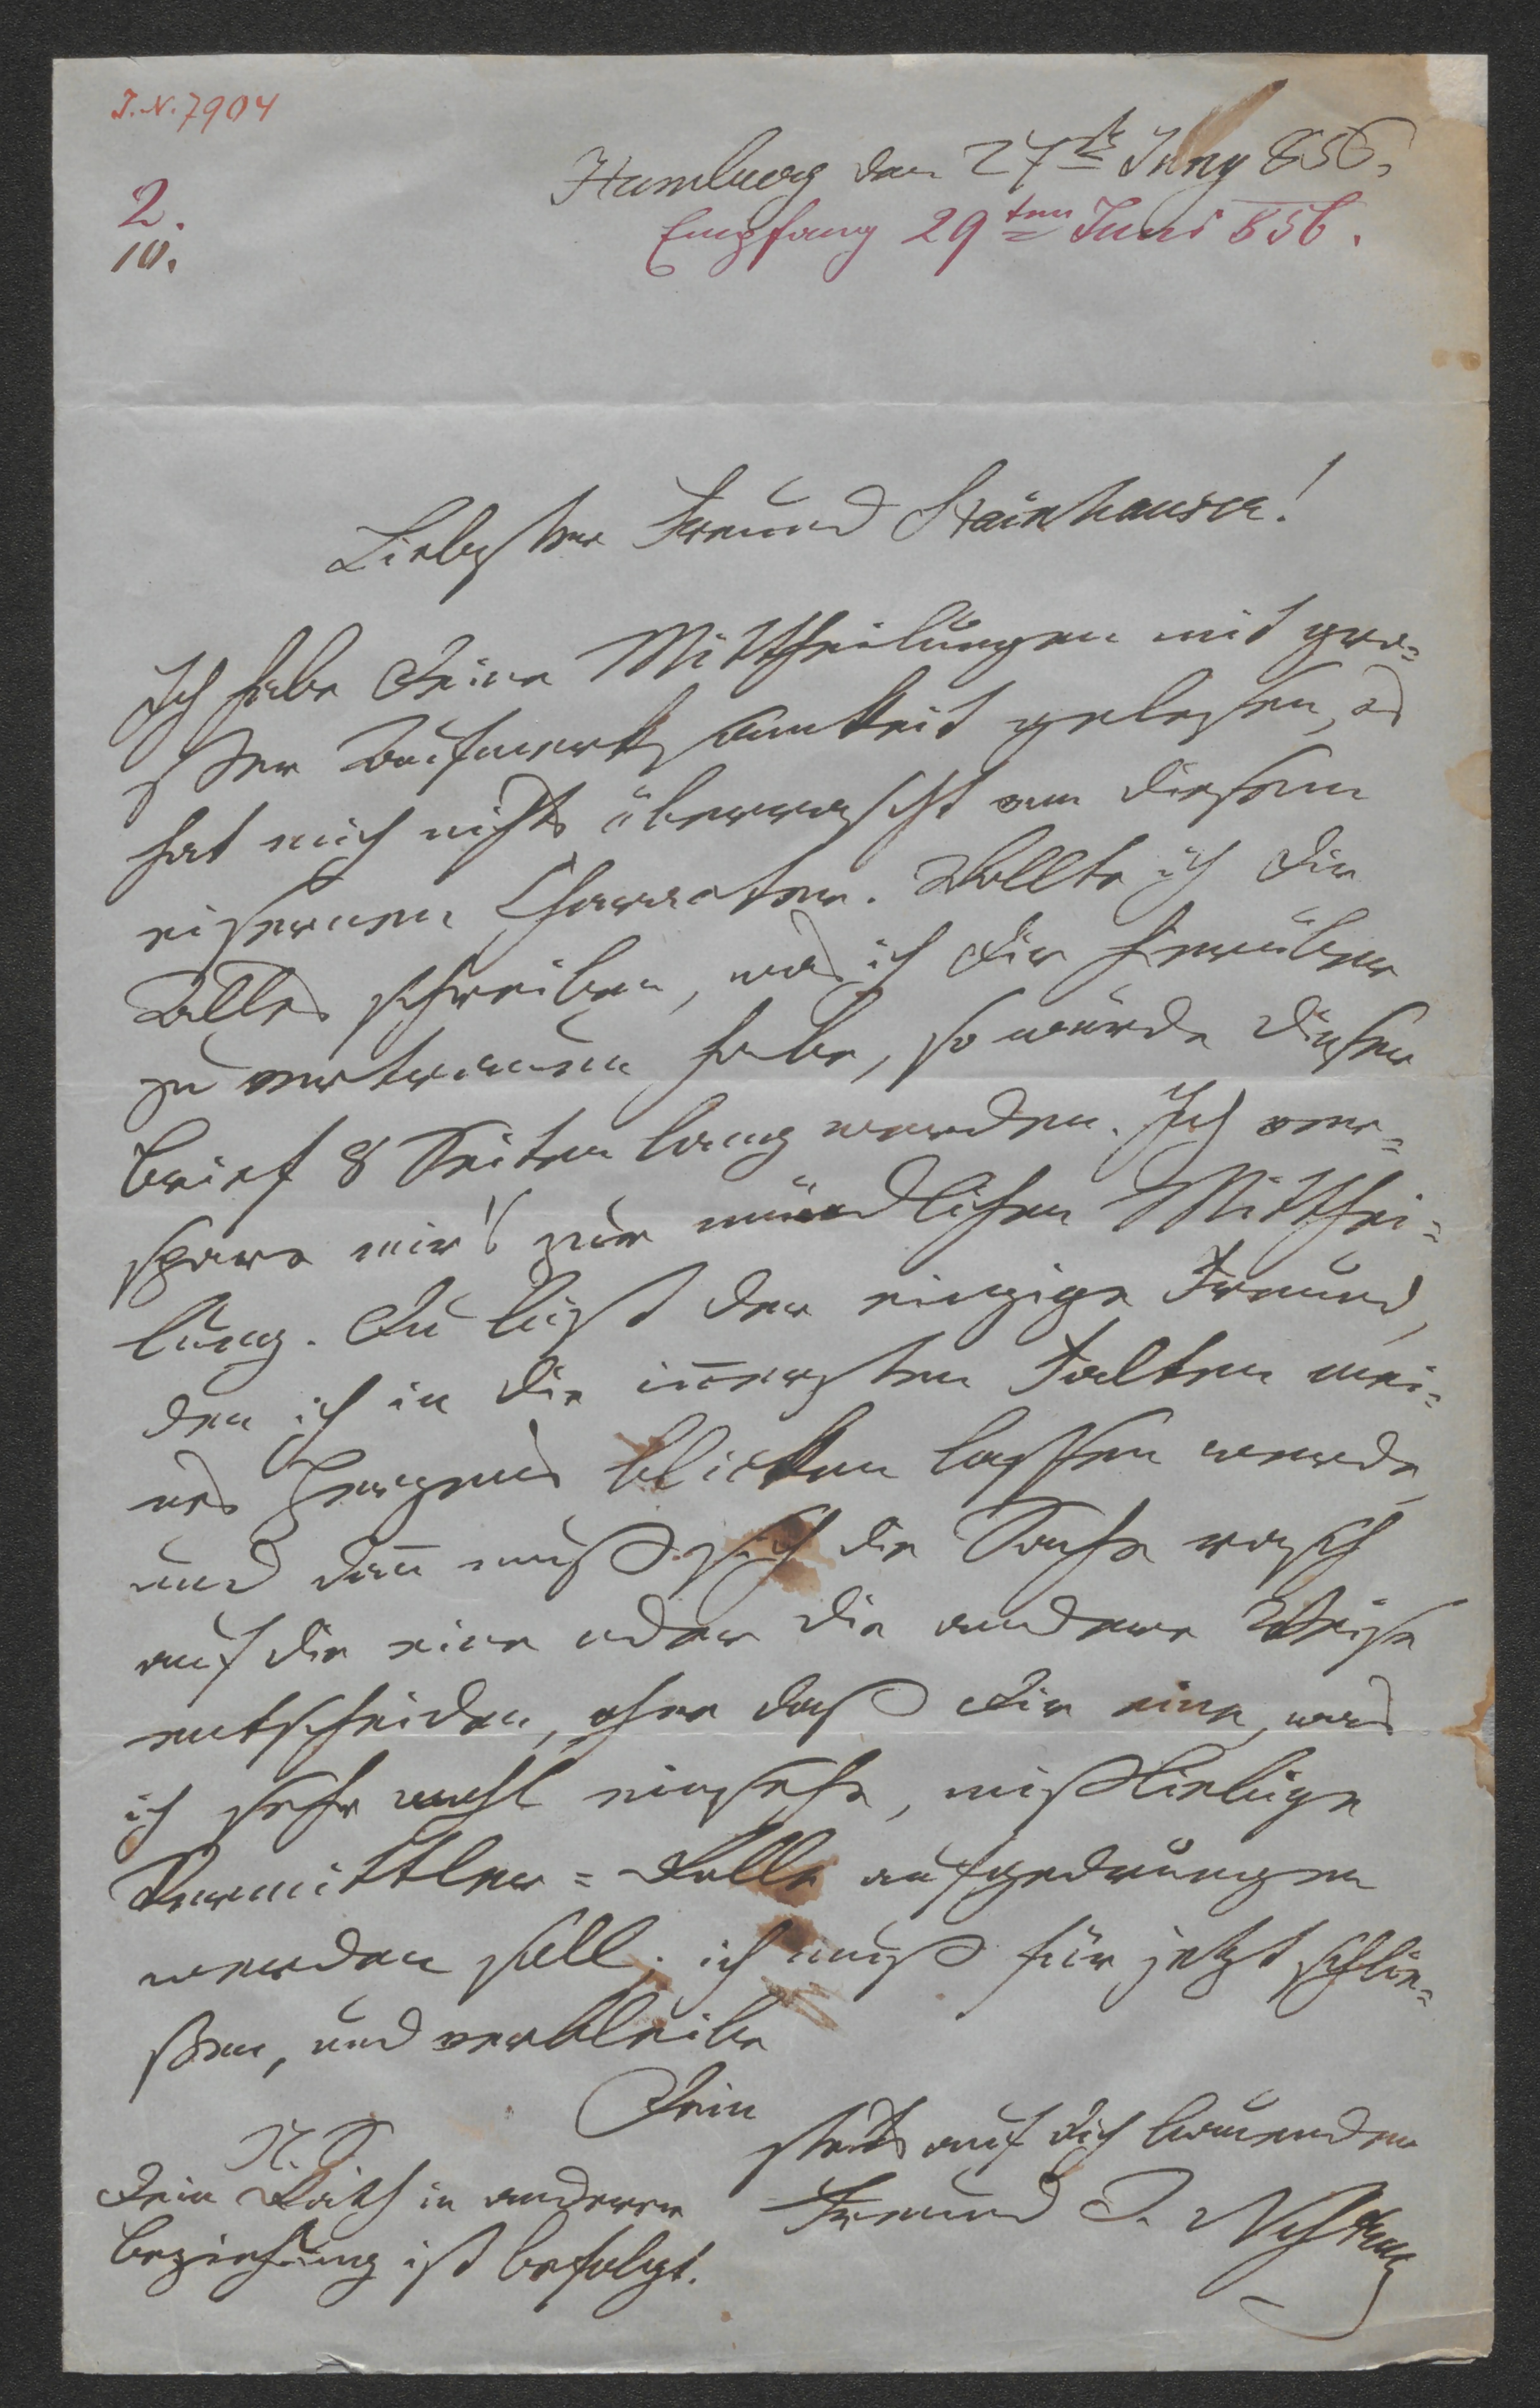 I.N. 7904
2.
10.
Hamburg den 27t Juny 856.
Empfang 29ten Juni 856.
Liebster Freund Stainhauser!
Ich habe Deine Mittheilungen mit grö=
ßter Aufmerksamkeit gelesen, es
hat mich nichts überrascht von diesem
eisernen Character. Wollte ich Dir
Alles schreiben, was ich Dir hierüber
zu vertrauen habe, so würde dieser
Brief 8 Seiten lang werden. Ich ver=
spare mir's zur mündlichen Mitthei=
lung. Du bist der einzige Freund,
den ich in die iñersten Falten mei=
nes Herzens blicken lassen werde,
und dañ muß sich die Sache rasch
auf die eine oder die andere Weise
entscheiden, ohne daß Dir eine, was
ich sehr wohl einsehe, mißliebige
Vermittler=Rolle aufgedrungen
werden soll. ich muß für jetzt schlie=
ßen, und verbleibe
Dein
stets auf Dich bauender
Freund J. Nestroy
N.S.
Dein Rath in anderer
Beziehung ist befolgt.